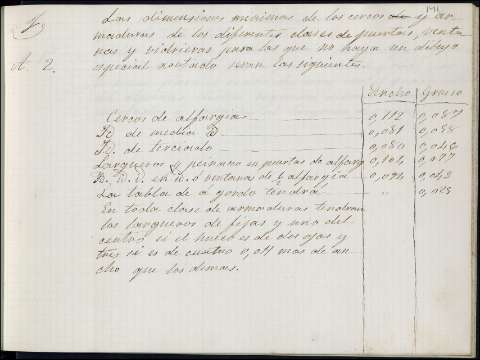 Las dimensiones maximas de los cercos y ar-
maduras de los diferentes clases de puertas, venta
nas y vidrieras para las que no haya un dibujo
especial acotado seran las siguientes.
A. 2.
Ancho Grueso
Cercos de alfargia 0,112 0,087
Id de media D 0,081 0,058
Id. de terciado 0,080 0,046
Largueros y peinazos en puertas de alfarg 0,104 0,077
Id. id. id en id. o ventanas de alfargia 0,094 0,042
La tabla de a gordo tendrá " 0,025
En toda clase de armaduras tendran
los largueros de fijas y uno del
centro si el hueco es de dos ojas y
tres si es de cuatro 0,011 mas de an-
cho que los demas.